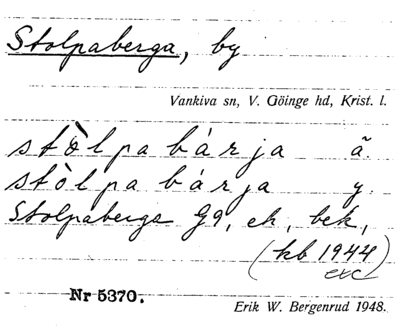 Stolpaberga, by
Vankiva sn, V. Göinge hd, Krist. l.
stòlpa bárja ã.
stòlpa bárja y.
Stolpaberga G9, ek, bek,
(kb 1944)
exc
Nr 5370.
Erik W. Bergenrud 1948.